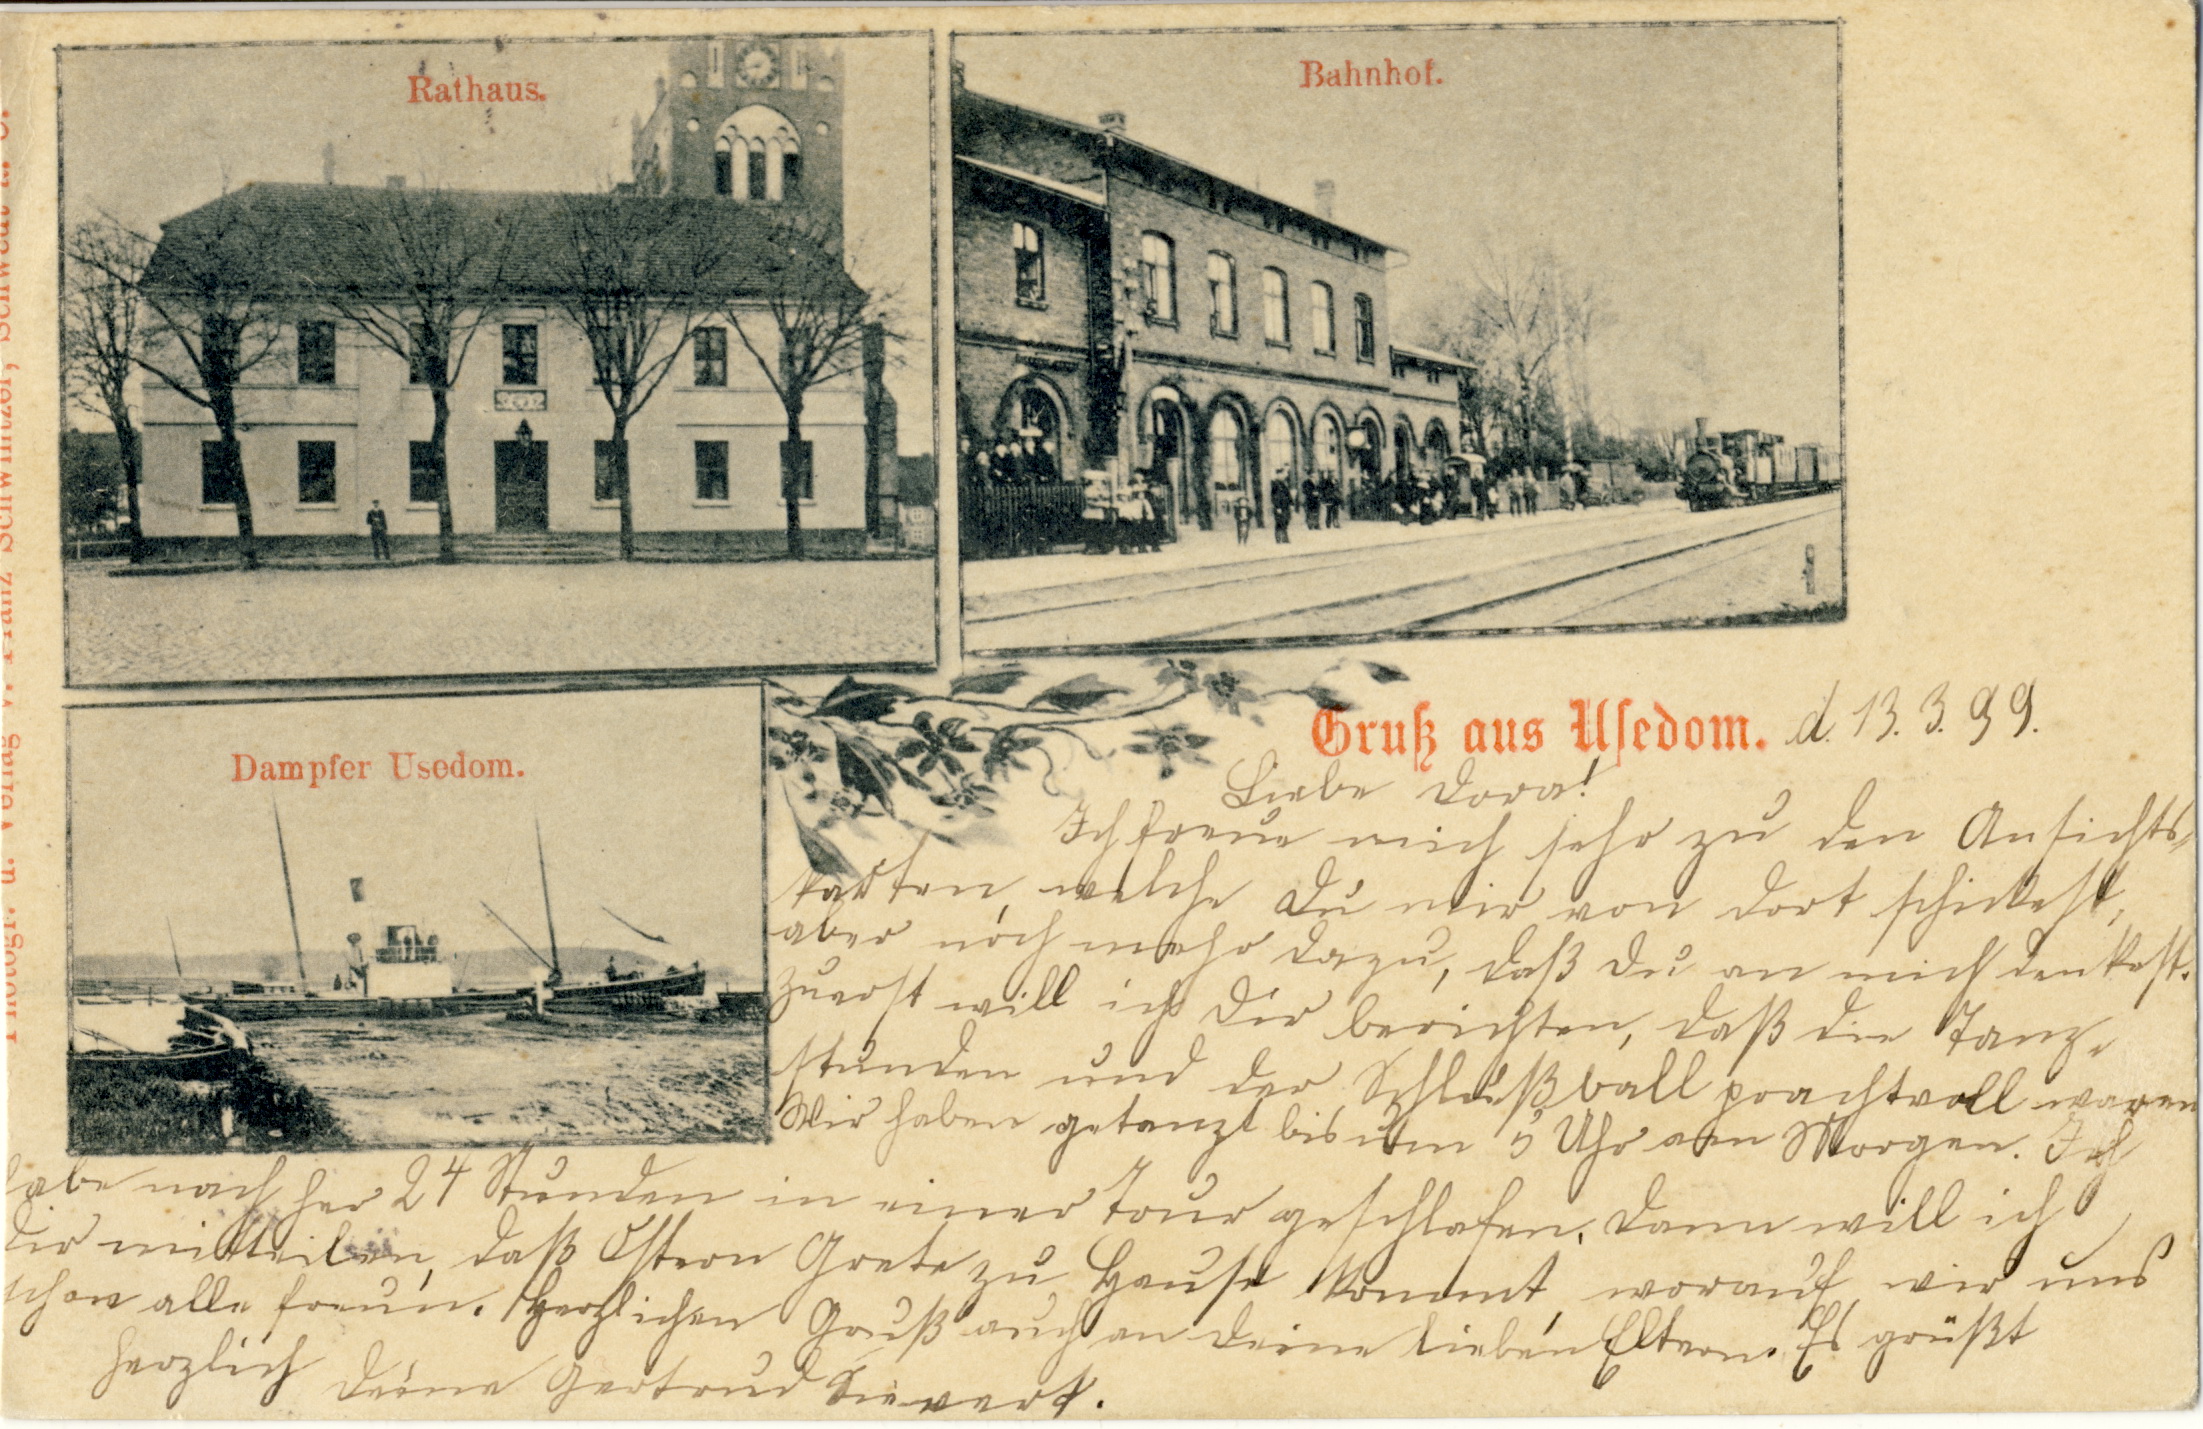 Rathaus.
Bahnhof.
Dampfer Usedom.
Photogr. u. Verlag v. Franz Schwinitzer, Schwedt a. O.
Gruß aus Usedom. d. 13. 3. 99.
Liebe Dora!
Ich freue mich sehr zu den Ansichts-
karten, welche Du mir von dort schickest,
aber noch mehr dazu, daß Du an mich denkest.
Zuerst will ich Dir berichten, daß die Tanz-
stunden und der Schlußball prachtvoll waren
Wir haben getanzt bis um 5 Uhr am Morgen. Ich
habe nach her 24 Stunden in einer Tour geschlafen. Dann will ich
Dir mitteilen, daß Ostern Grete zu Hause kommt, worauf wir uns
schon alle freun. Herzlichen Gruß auch an Deine lieben Eltern. Es grüßt
herzlich Deine Gertrud Sievert.